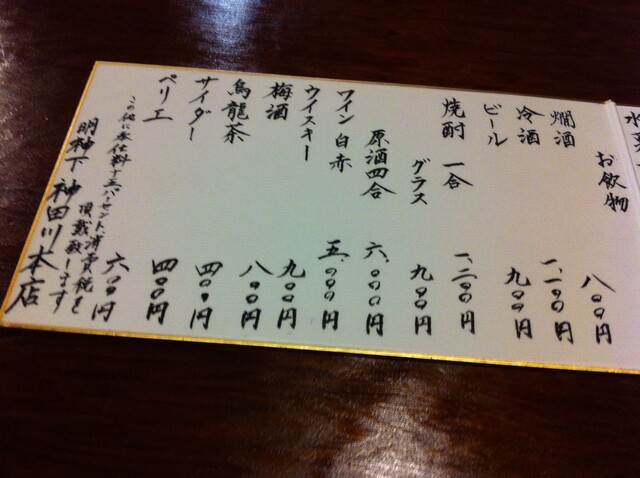 お飲物
燗酒 八〇〇円
冷酒 一、一〇〇円
ビール 九〇〇円
焼酎 一合 一、二〇〇円
グラス 九〇〇円
原酒四合 六、〇〇〇円
ワイン 白赤 五、〇〇〇円
ウイスキー 九〇〇円
梅酒 八〇〇円
烏龍茶 四〇〇円
サイダー 四〇〇円
ペリエ 六〇〇円
この他に奉仕料十五パーセント消費税を
頂戴致します
明神下 神田川本店